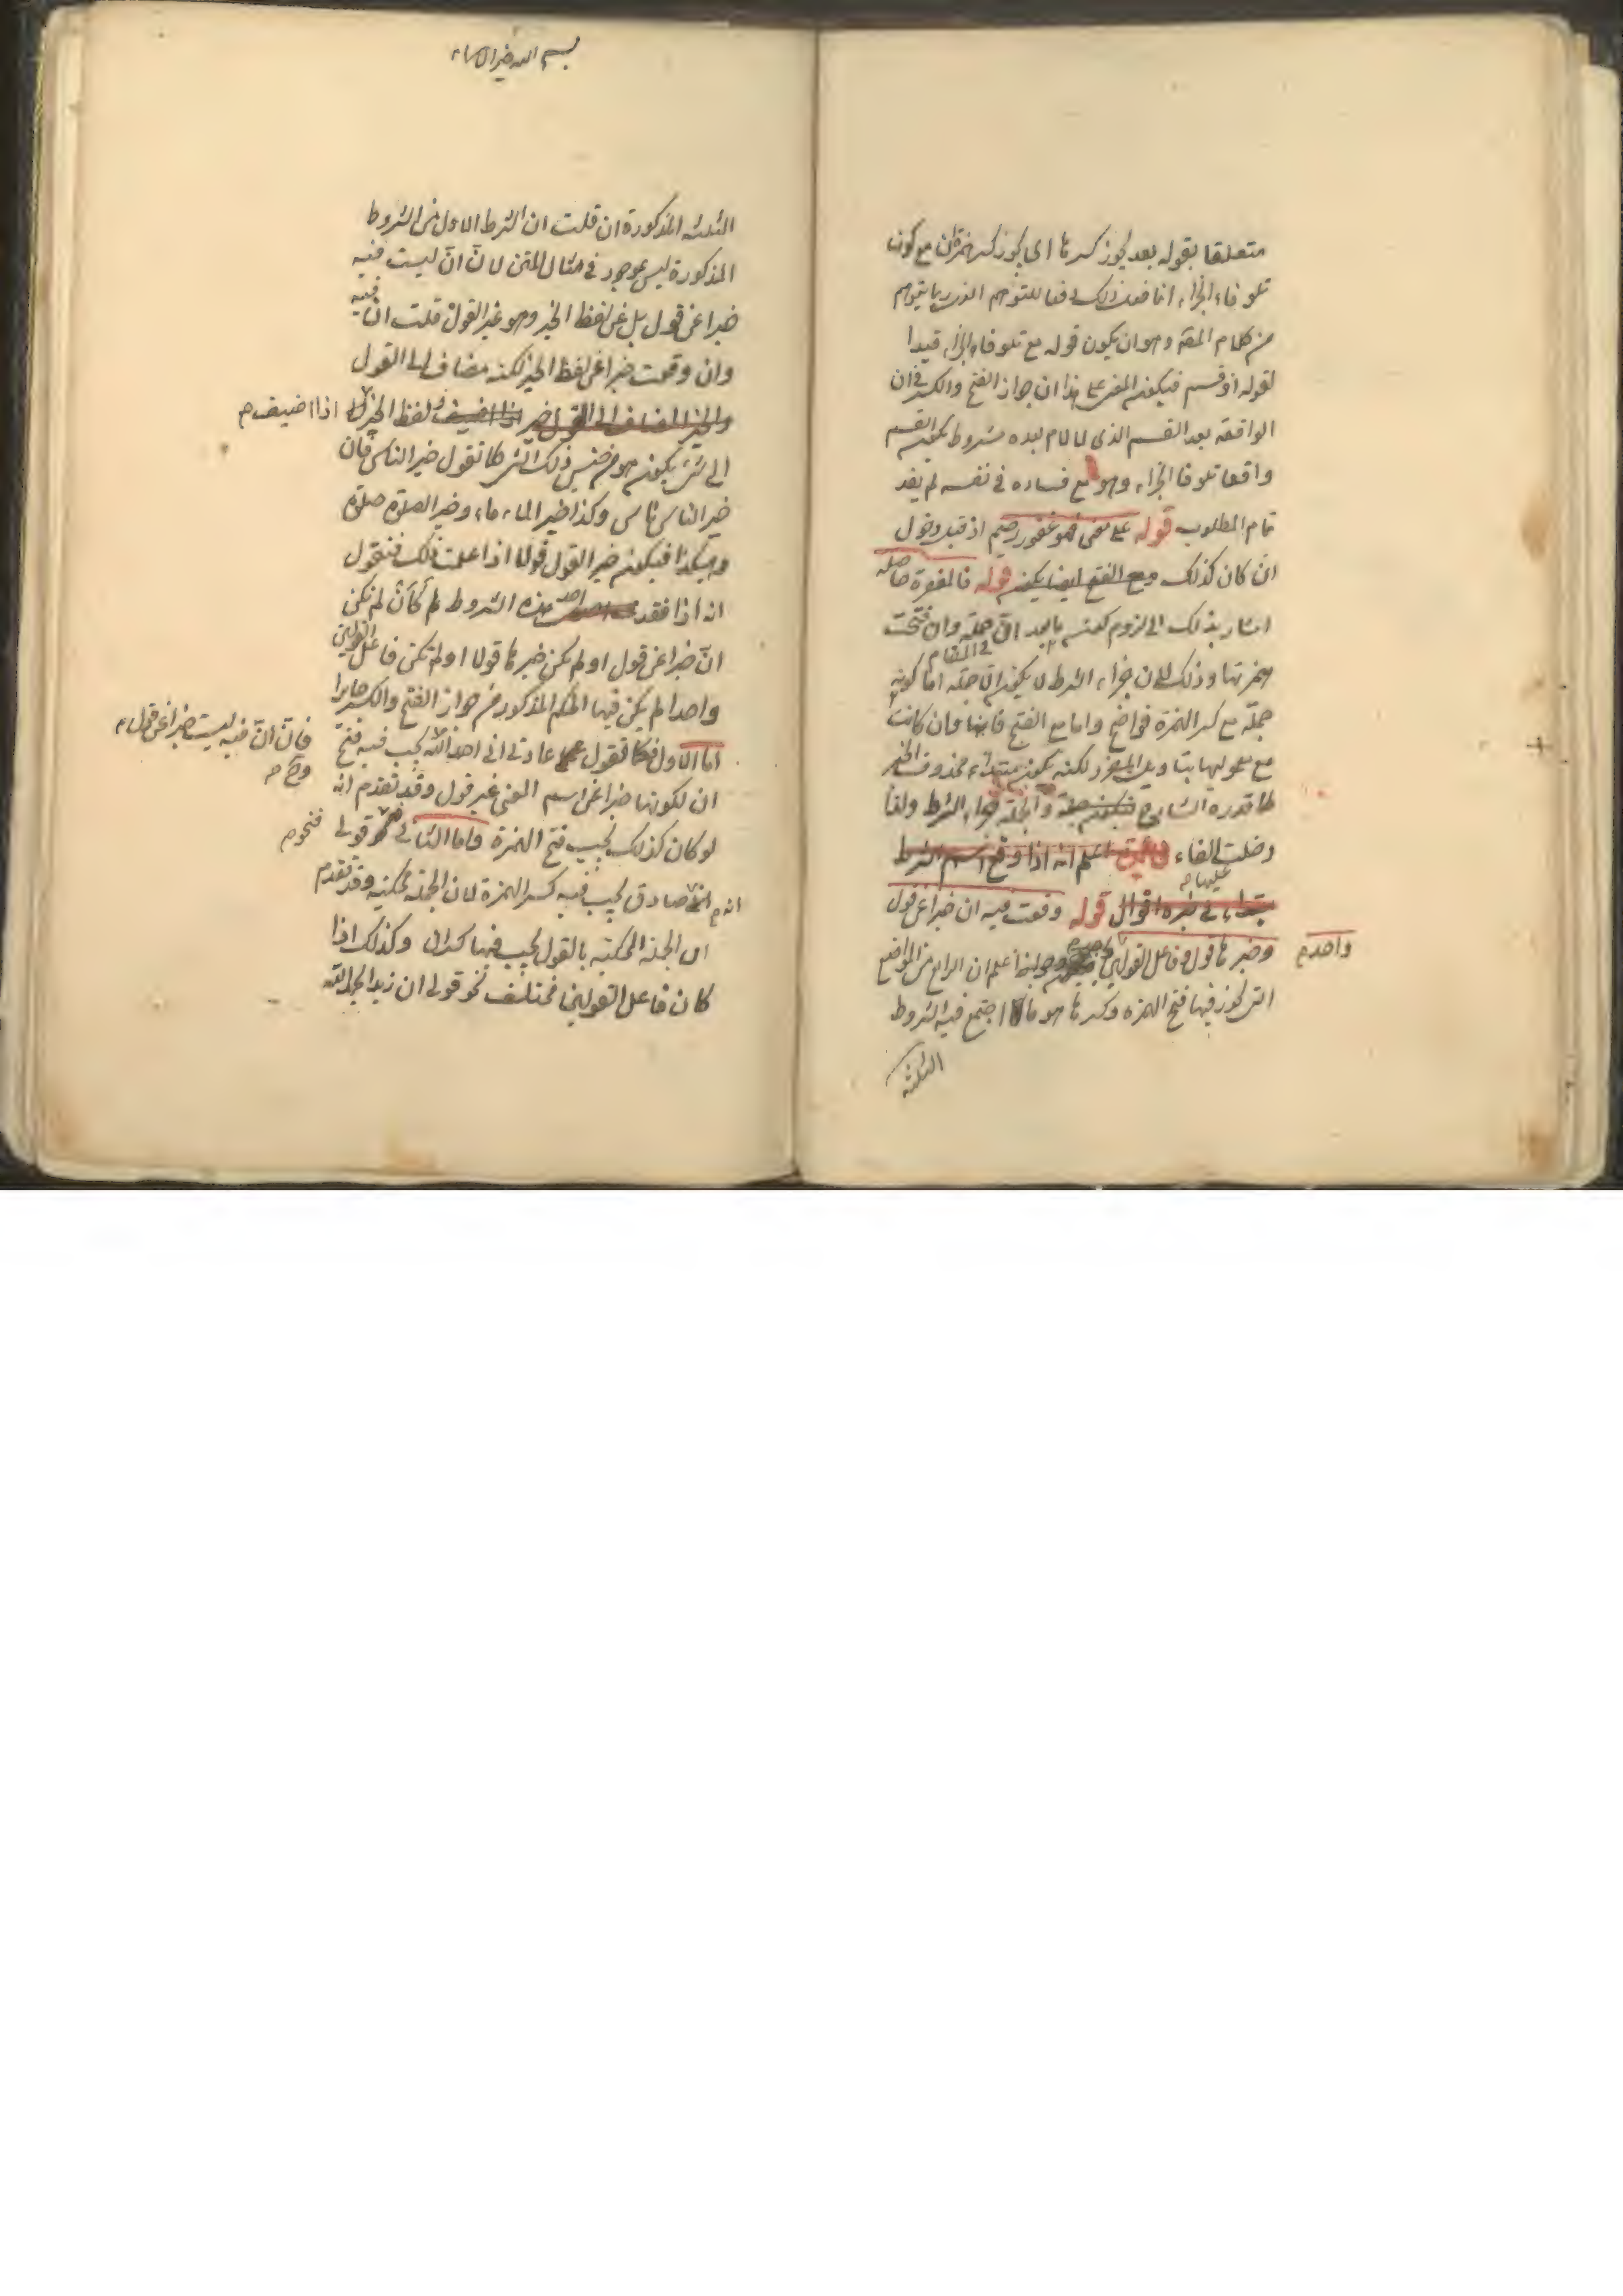 متعلقا بقوله بعد يجوز كسرها اى يجوز كسر همزة ان مع كون
تلو فاء الجزاء انما فعل ذلك دفعا للتوهم الذى ربما يتوهم
من كلام المصه وهو ان يكون قوله مع تلو فاء الجزاء قيدا
لقوله او قسم فيكون المعنى على هذا ان جواز الفتح والكسر فى ان
الواقعة بعد القسم الذى لا لام بعده مشروط بكون القسم
واقعا تلو فا الجزاء وهو مع فساده فى نفسه لم يفد
تمام المطلوب قوله على معنى فهو غفور رحيم اذ قبل دخول
ان كان كذلك ومع الفتح ايضا يكون قوله فالمغفرة حاصلة
اشار بذلك الى لزوم كون ما بعد ان جملة وان فتحت
فى المقام
همزتها وذلك لان جزاء الشرط لا يكون الا جملة اما كونه
جملة مع كسر الهمزة فواضح واما مع الفتح فانها وان كانت
مع معموليها بتاويل المفرد لكنه يكون مبتداء محذوف الخبر
كما قدره الشارح فيكون جملة والجملة جواب الشرط ولذا
دخلت الفاء اعلم انه اذا وقع اسم الشرط
عليها م
مبتداء فى خبره اقوال قوله وقعت فيه ان خبرا عن قول
وخبرها قول وفاعل القولين واحد اعلم ان الرابع من المواضع
واحد م
التى يجوز فيها فتح الهمزة وكسرها هو ما اجتمع فيه الشروط
الثلثة
بسم الله خير الاسماء
الثلثة المذكورة ان قلت ان الشرط الاول من الشروط
المذكورة ليس بموجود فى مثال المتن لان ان ليست فيه
خبرا عن قول بل عن لفظ الخير وهو غير القول قلت ان فيه
وان وقعت خبرا عن لفظ الخير لكنه مضاف الى القول
والخير المضاف الى القول خير اذا اضيف ولفظ الخير اذا اضيف م
الى شىء يكون هو من جنس ذلك الشىء كما تقول خير الناس فان
خير الناس ناس وكذا خير الماء ماء وخير الصلوة صلوة
وهكذا فيكون خير القول قولا اذا علمت ذلك فنقول
انه اذا فقد احد هذه الشروط كأن لم تكن
انّ خبرا عن قول او لم يكن خبرها قولا او لم يكن فاعل القولين
واحدا لم يكن فيها الحكم المذكور من جواز الفتح والكسر جايزا
اما الاول فكما تقول عادتى انى احمد الله يجب فيه فتح
فان انّ فيه ليست خبرا عن قول م
ان لكونها خبرا عن اسم المعنى غير قول وقد تقدم انه
لو كان كذلك يجب فتح الهمزة واما الثانى قولى
فنحو م
انه م لصادق يجب فيه كسر الهمزة لان الجملة محكية وقد تقدم
ان الجملة المحكية بالقول يجب فيها كسر ان وكذلك اذا
كان فاعل القولين مختلف نحو قولى ان زيدا يحمد الله